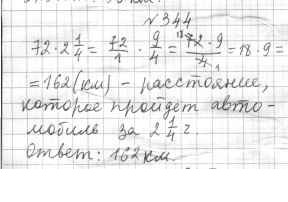 N 344
72 · 2 1/4 = 72/1 · 9/4 = 72 · 9/4 = 18 · 9 =
= 162 (км) – расстояние,
которое пройдет авто-
мобиль за 2 1/4 ч.
Ответ: 162 км.